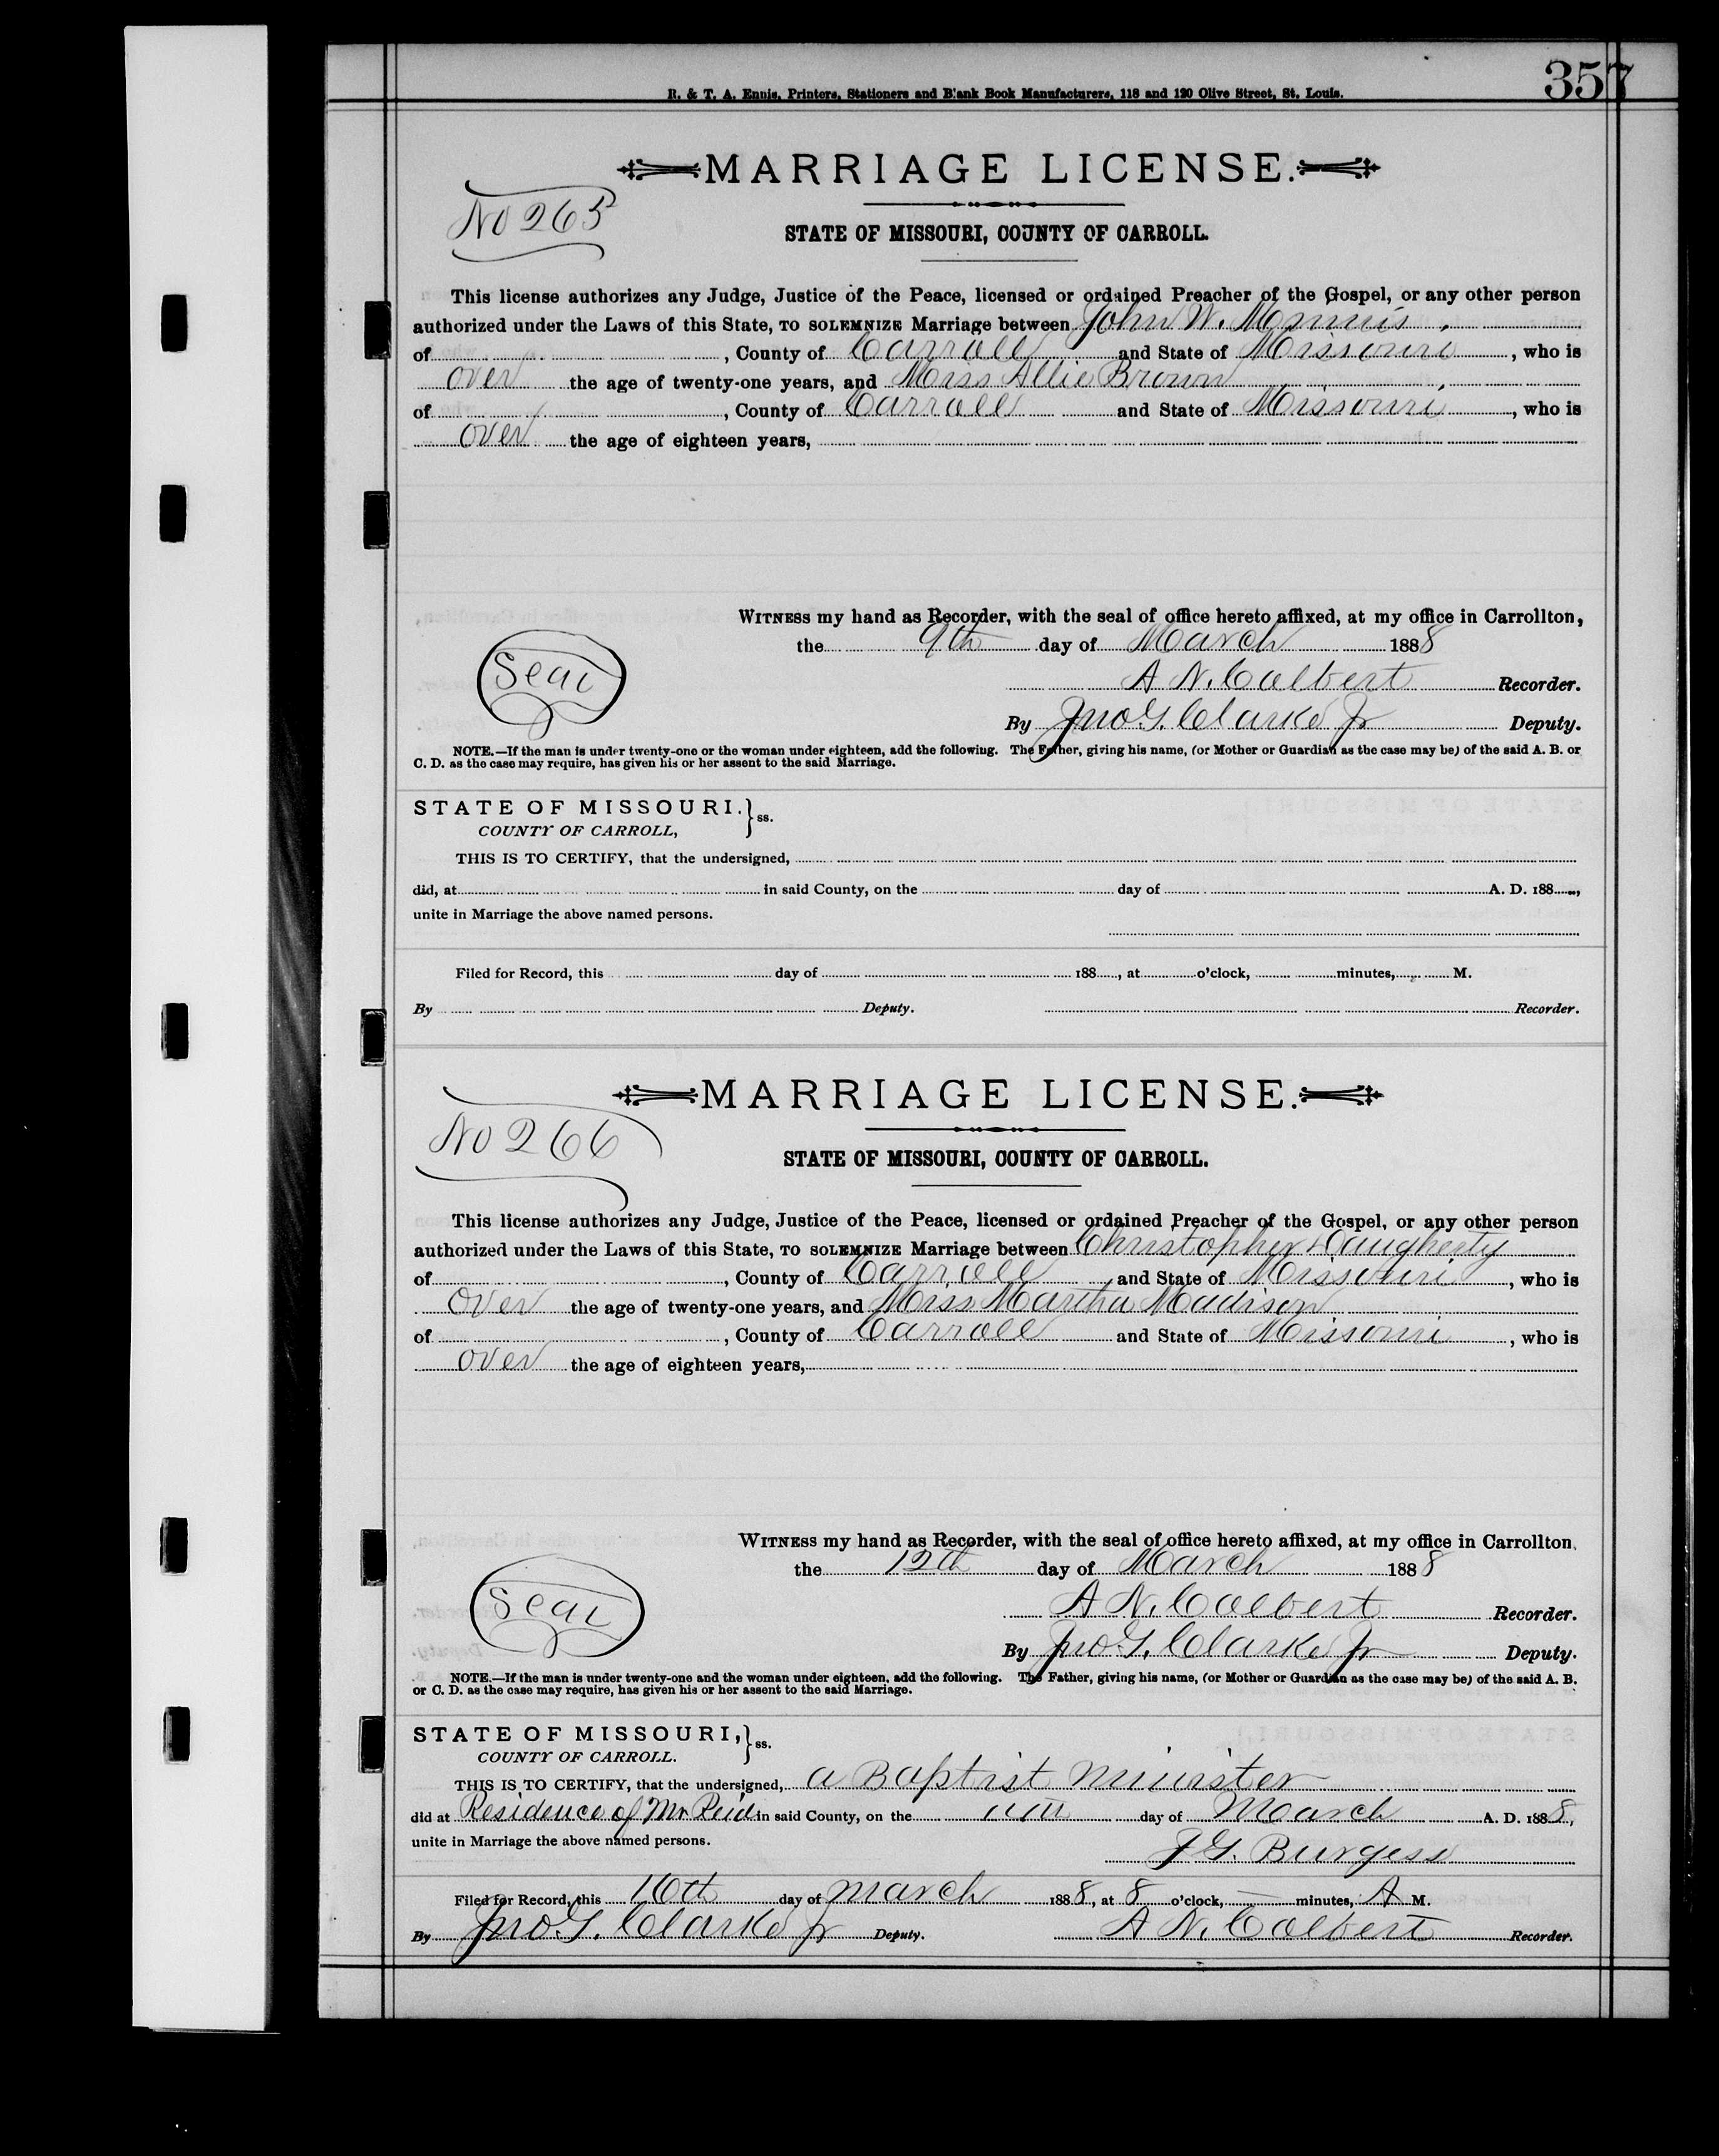 357
R. & T. A. Ennis, Printers, Stationers and Blank Book Manufacturers, 118 and 120 Olive Street, St. Louis.
MARRIAGE LICENSE.
No 265
STATE OF MISSOURI, COUNTY OF CARROLL.
This license authorizes any Judge, Justice of the Peace, licensed or ordained Preacher of the Gospel, or any other person
authorized under the Laws of this State, TO SOLEMNIZE Marriage between John W.
of , County of Carroll and State of Missouri , who is
over the age of twenty-one years, and Miss Allie Brown
of , County of Carroll and State of Missouri , who is
over the age of eighteen years,
WITNESS my hand as Recorder, with the seal of office hereto affixed, at my office in Carrollton,
the 9th day of March 1888
Seal
A N. Colbert Recorder.
By Jno. G. Clarke Jr Deputy.
NOTE.—If the man is under twenty-one or the woman under eighteen, add the following. The Father, giving his name, (or Mother or Guardian as the case may be) of the said A. B. or
C. D. as the case may require, has given his or her assent to the said Marriage.
STATE OF MISSOURI. } ss.
COUNTY OF CARROLL,
THIS IS TO CERTIFY, that the undersigned,
did, at in said County, on the day of A. D. 188 ,
unite in Marriage the above named persons.
Filed for Record, this day of 188 , at o'clock, minutes, M.
By Deputy. Recorder.
MARRIAGE LICENSE.
No 266
STATE OF MISSOURI, COUNTY OF CARROLL.
This license authorizes any Judge, Justice of the Peace, licensed or ordained Preacher of the Gospel, or any other person
authorized under the Laws of this State, TO SOLEMNIZE Marriage between Christopher Daugherty
of , County of Carroll and State of Missouri , who is
over the age of twenty-one years, and Miss Martha Madison
of , County of Carroll and State of Missouri , who is
over the age of eighteen years,
WITNESS my hand as Recorder, with the seal of office hereto affixed, at my office in Carrollton,
the 12th day of March 1888
Seal
A N. Colbert Recorder.
By Jno. G. Clarke Jr Deputy.
NOTE.—If the man is under twenty-one and the woman under eighteen, add the following. The Father, giving his name, (or Mother or Guardian as the case may be) of the said A. B.
or C. D. as the case may require, has given his or her assent to the said Marriage.
STATE OF MISSOURI, } ss.
COUNTY OF CARROLL.
THIS IS TO CERTIFY, that the undersigned, a Baptist minister
did at Residence of Mr. Reid in said County, on the day of March A. D. 1888,
unite in Marriage the above named persons.
J G. Burgess
Filed for Record, this 16th day of March 1888, at 8 o'clock, — minutes, A M.
By Jno. G. Clarke Jr Deputy. A N. Colbert Recorder.